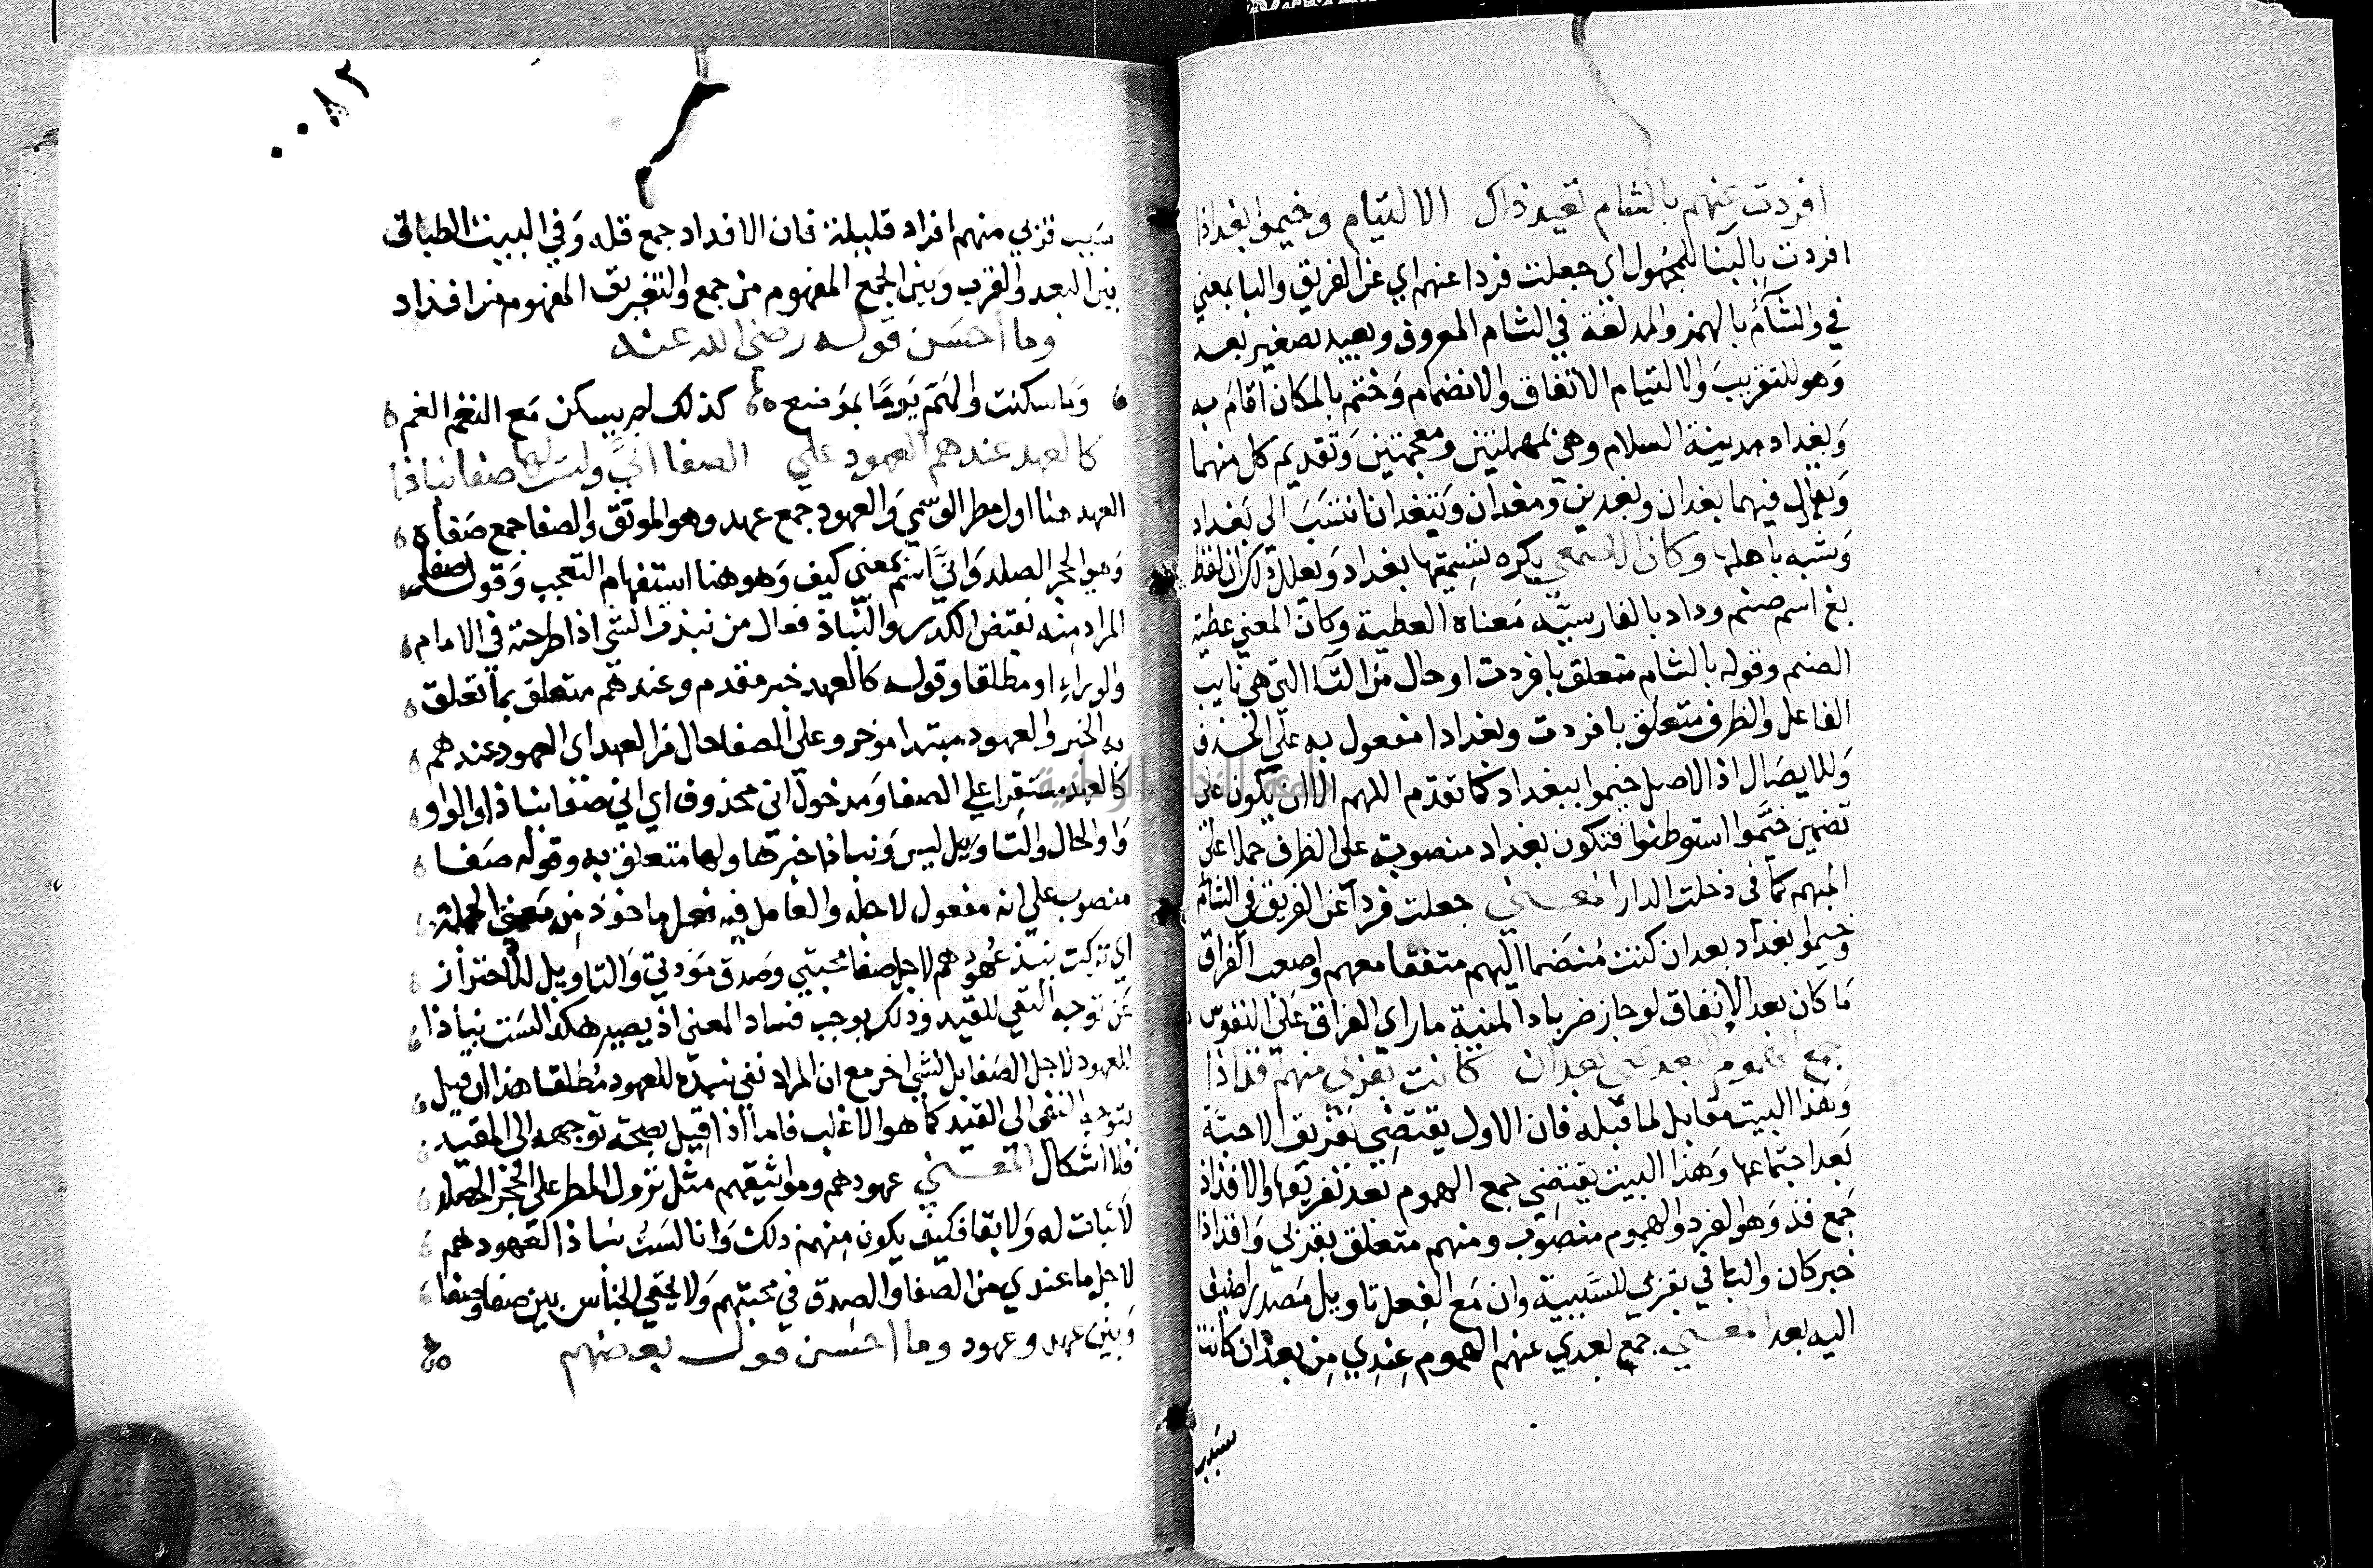 افردت عنهم بالشام بعيد ذاك الالتيام وخيموا بغداذا
افردت بالبنا للمجهول اي جعلت فردا عنهم اي عن الفريق والبا بمعني
في والشأم بالهمز والمد لغة في الشام المعروف وبعيد تصغير بعد
وهو للتقريب والالتيام الاتفاق والانضمام وختم بالمكان اقام به
وبغداد مدينة السلام وهي بمهملتين ومعجمتين وتقديم كل منهما
ويقال فيهما بغدان وبغدين ومغدان وتبغدانا نتسب الي بغداد
وشبه باهلها وكان الاصمعي يكره تسميتها بغداد ويعلل ذلك ان لفظ
بغ اسم صنم وداد بالفارسية معناه العطية وكان المعني عطية
الصنم وقوله بالشام متعلق بافردت او حال من التا التي هي نايب
الفاعل والظرف متعلق بافردت وبغدادا مفعول به علي الحذف
وللايصال اذ الاصل خيموا ببغداد كما تقدم اللهم الا ان يكون علي
تضمين ختموا استوطنوا فتكون بغداد منصوبة علي الظرف حملا علي
المبهم كما في دخلت الدار المعني جعلت فردا عن الفريق في الشأم
وخيموا بغداد بعد ان كنت منضما اليهم متفقا معهم واصعب الفراق
ما كان بعد الاتفاق لو حاز ضرباد المنية ما راي الفراق علي النفوس
جمع الهموم البعد عني بعد ان كانت بقربي منهم افذاذا
وهذا البيت مقابل لما قبله فان الاول يقتضي تفريق الاحبة
بعد اجتماعها وهذا البيت يقتضي جمع الهموم بعد تفريقها والافذاذ
جمع فذ وهو الفرد والهموم منصوب ومنهم متعلق بقربي وافذاذا
خبر كان والبا في بقربي للسببية وان مع الفعل تاويل مصدر اضيف
اليه بعد المعني جمع بعدي عنهم الهموم عندي من بعد ان كانت
سبب
٠٠٨٢
سبب قربي منهم افراد قليلة فان الافداد جمع قله وفي البيت الطباق
بين البعد والقرب وبين الجمع المفهوم من جمع والتفريق المفهوم من افذاذ
وما احسن قوله رضي الله عنه
وما سكنت والهم يوما بموضع كذلك لم يسكن مع النغم الغم
كالعهد عندهم العهود علي الصفا اني ولست لها صفا نباذا
العهد هنا اول مطر الوسمي والعهود جمع عهد وهو الموثق والصفا جمع صفاه
وهو الحجر الصلد واني اسم بمعني كيف وهو هنا استفهام التعجب وقوله صفا
المراد منه نقيض الكدر والنباذ فعال من نبذت الشي اذا طرحته في الامام
والوراء او مطلقا وقوله كالعهد خبر مقدم وعندهم متعلق بما تعلق
به الخبر والعهود مبتدا موخر وعلي الصفا حال من العهد اي العهود عندهم
كالعهد مستقرا علي الصفا ومدخول اني محذوف اي اني صفا نباذا والواو
واو الحال والتا ويل ليس ونباذا خبرها ولها متعلق به وقوله صفا
منصوب علي انه مفعول لاجله والعامل فيه فعل ماخوذ من معني الجملة
اي تركت نبذ عهودهم لاجل صفا محبتي وصدق مودتي والتاويل للاحتراز
عن توجه النفي للقيد وذلك يوجب فساد المعني اذ يصير هكذا لست نباذا
العهود لاجل الصفا بل لشي اخر مع ان المراد نفي نبذه للعهود مطلقا هذا ان قيل
بتوجه النفي الي القيد كما هو الاغلب فاما اذا قيل بصحة توجهه الي المقيد
فلا اشكال المعني عهودهم ومواثيقهم مثل نزول المطر علي الحجر الصلد
لا ثبات له ولا بقا فكيف يكون منهم ذلك وانا لست نباذا لعهودهم
لاجل ما عندي من الصفا والصدق في محبتهم ولا يخفي الجناس بين صفا وصفا
وبين عهد وعهود وما احسن قول بعضهم